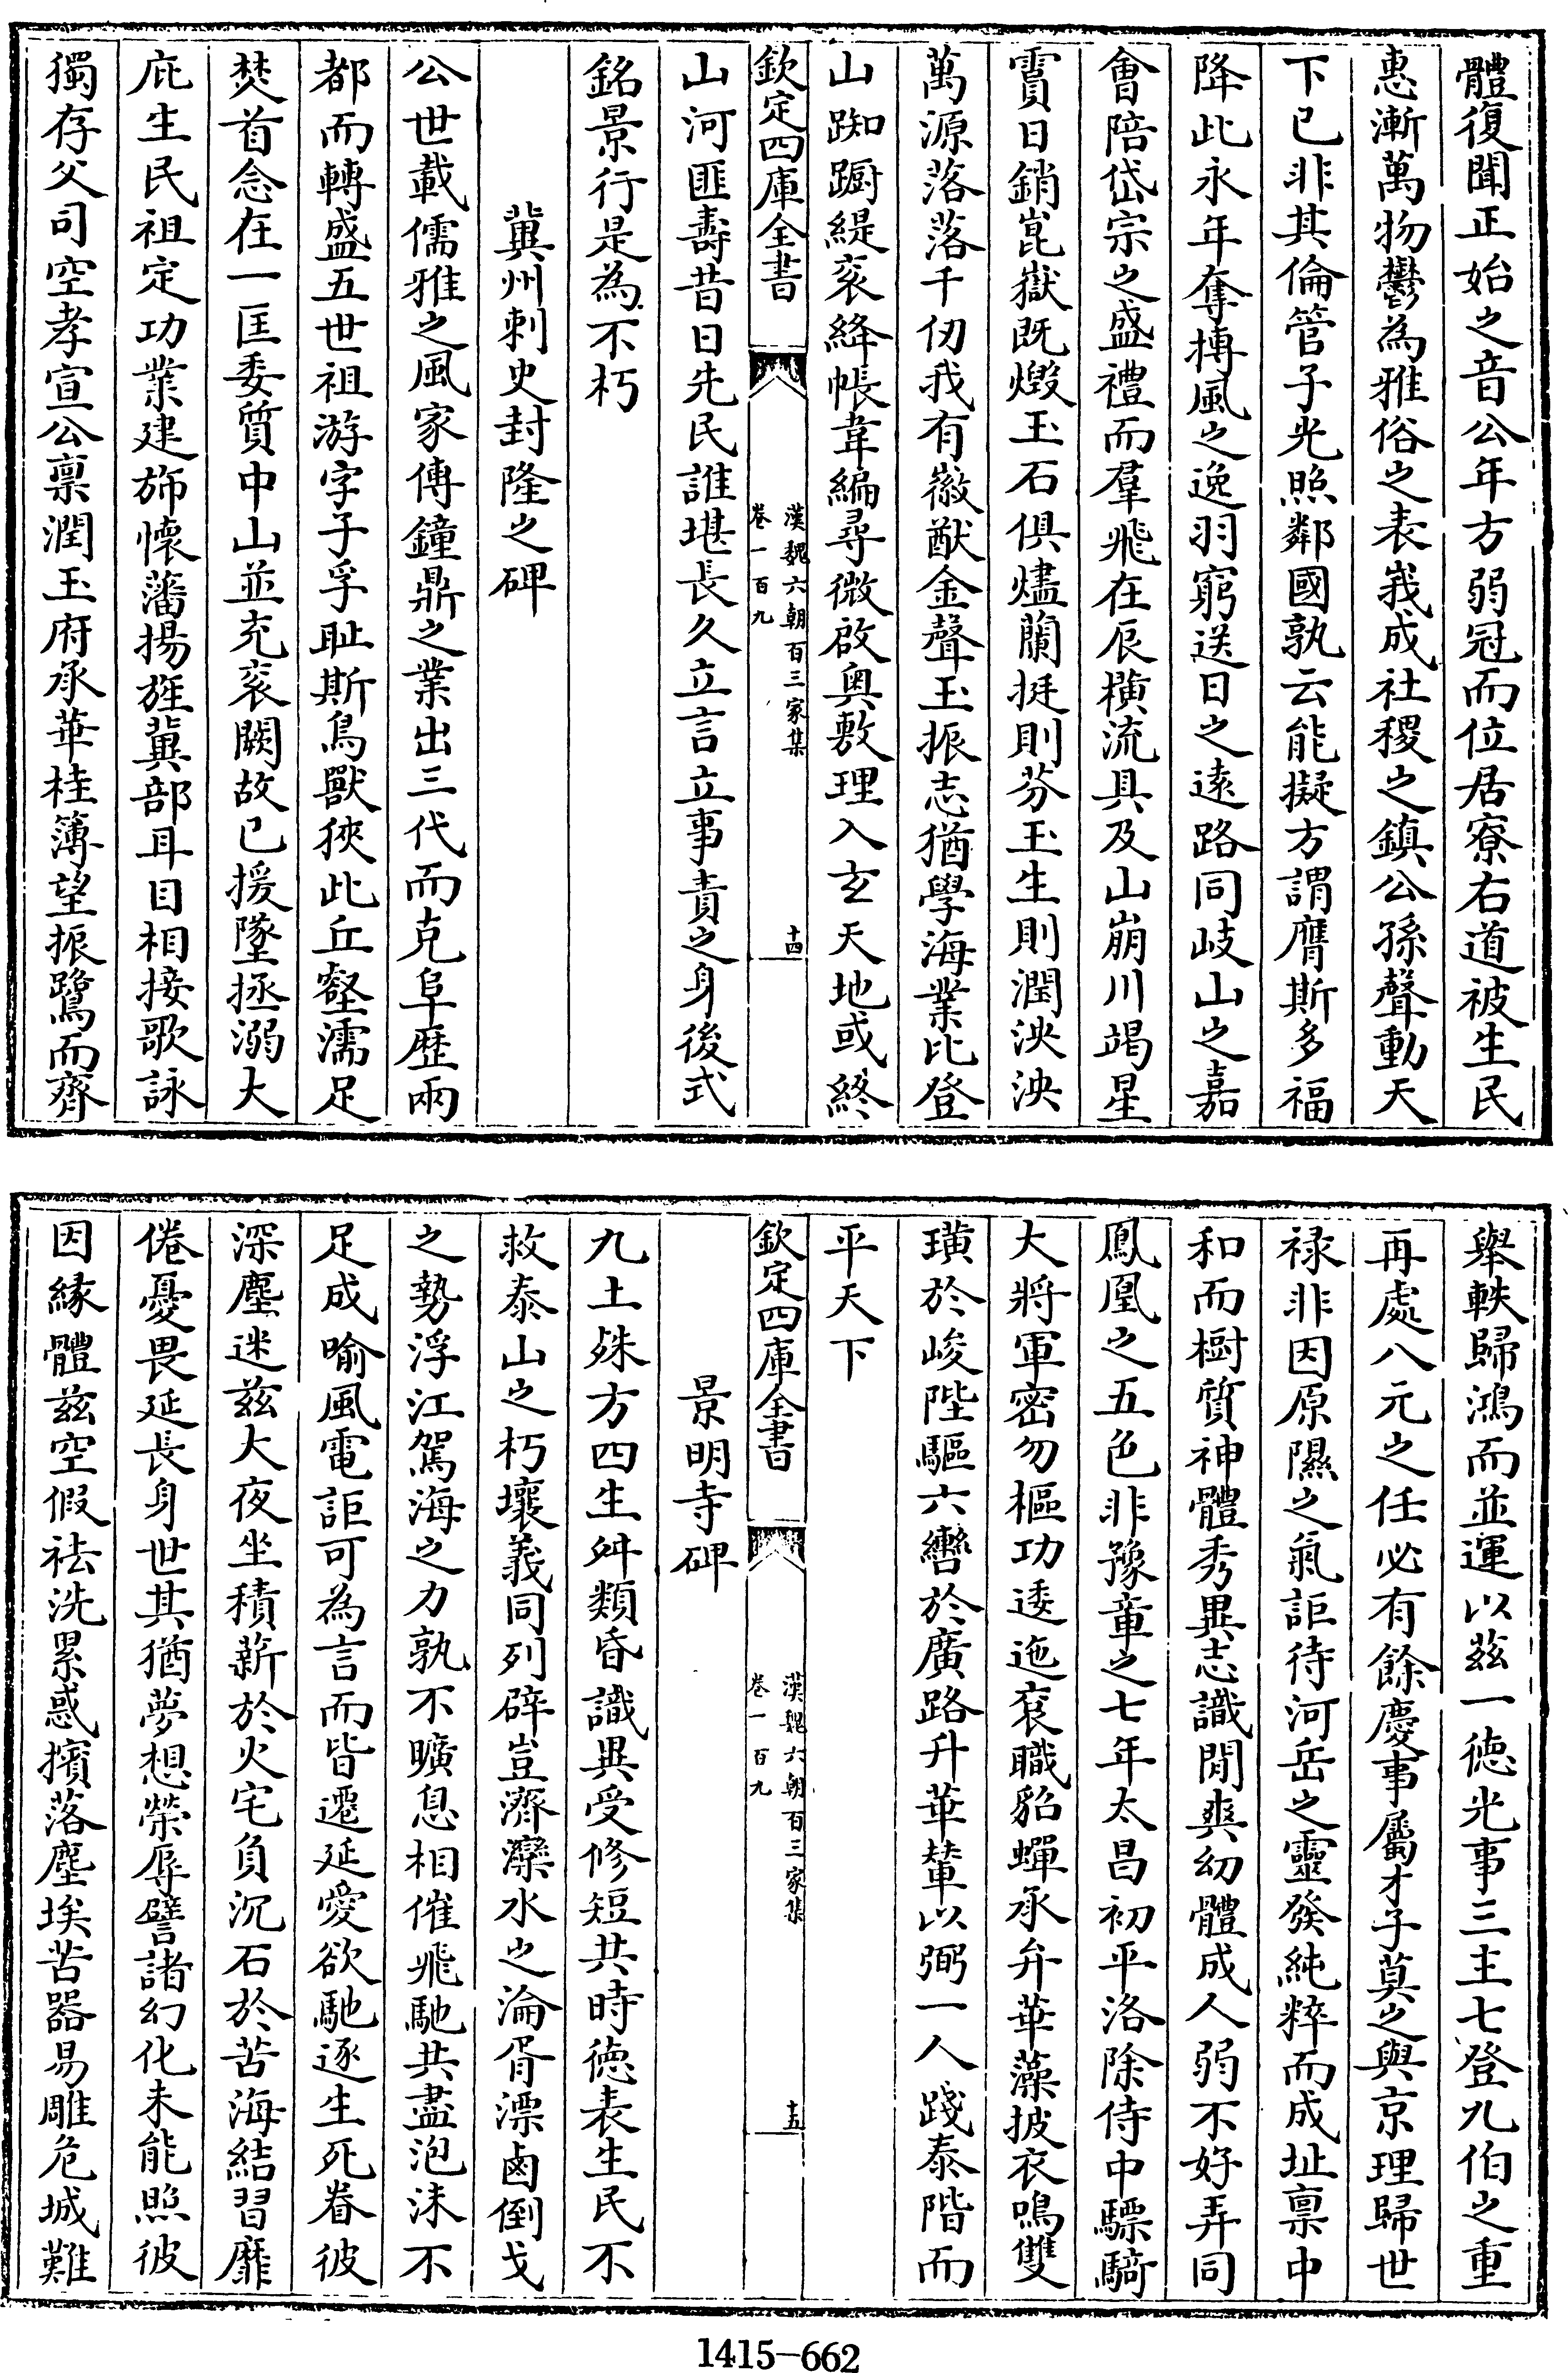 體復聞正始之音公年方弱冠而位居寮右道被生民
惠漸萬物鬱為雅俗之表峩成社稷之鎮公孫聲動天
下已非其倫管子光照鄰國孰云能擬方謂膺斯多福
降此永年奪摶風之逸羽窮送日之逺路同岐山之嘉
會陪岱宗之盛禮而羣飛在辰横流具及山崩川竭星
霣日銷崑嶽既燬玉石俱燼蘭挺則芬玉生則潤泱泱
萬源落落千仞我有徽猷金聲玉振志猶學海業比登
山踟躕緹袠絳帳韋編尋微啟奥敷理入玄天地或終
欽定四庫全書
漢魏六朝百三家集
卷一百九
十四
山河匪壽昔日先民誰堪長久立言立事責之身後式
銘景行是為不朽
冀州刺史封隆之碑
公世載儒雅之風家傳鐘鼎之業出三代而克阜歴兩
都而轉盛五世祖游字子孚耻斯鳥獸狹此丘壑濡足
焚首念在一匡委質中山並充衮闕故已援墜拯溺大
庇生民祖定功業建斾懷藩揚旌冀部耳目相接歌詠
獨存父司空孝宣公禀潤玉府承華桂簿望振鷺而齊
舉軼歸鴻而並運以兹一徳光事三主七登九伯之重
再處八元之任必有餘慶事屬才子莫之與京理歸世
禄非因原隰之氣詎待河岳之靈發純粹而成址禀中
和而樹質神體秀異志識閒爽幼體成人弱不好弄同
鳳凰之五色非豫章之七年太昌初平洛除侍中驃騎
大將軍密勿樞功逶迤衮職貂蟬承弁華藻披衣鳴雙
璜於峻陛驅六轡於廣路升華輦以弼一人踐泰階而
平天下
欽定四庫全書
漢魏六朝百三家集
卷一百九
十五
景明寺碑
九土殊方四生舛類昏識異受修短共時徳表生民不
救泰山之朽壞義同列辟豈濟灤水之淪胥漂鹵倒戈
之勢浮江駕海之力孰不曠息相催飛馳共盡泡沫不
足成喻風電詎可為言而皆遷延愛欲馳逐生死眷彼
深塵迷兹大夜坐積薪於火宅負沉石於苦海結習靡
倦憂畏延長身世其猶夢想榮辱譬諸幻化未能照彼
因緣體兹空假祛洗累惑擯落塵埃苦器易雕危城難
1415-662